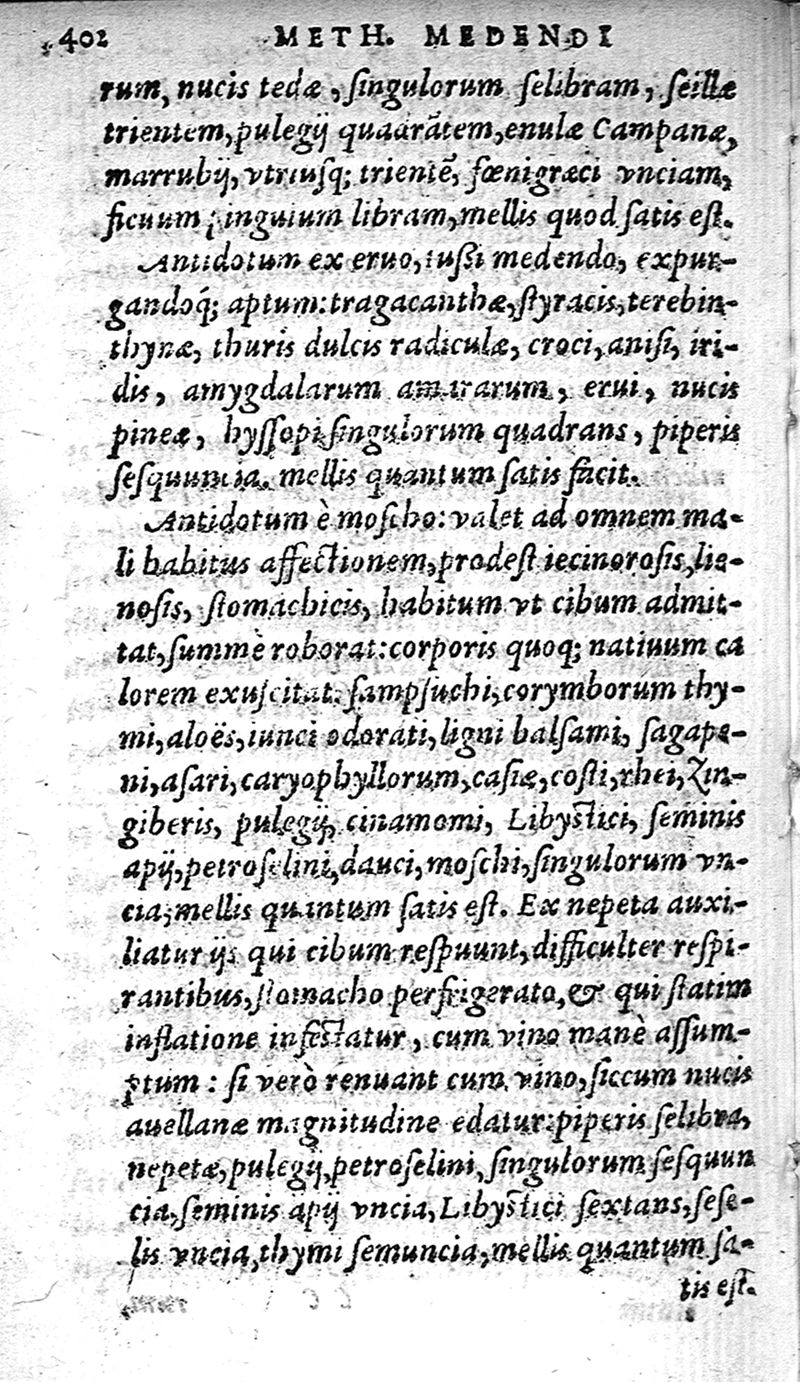 402 METH. MEDENDI
rum, nucis tedæ, ſingulorum ſelibram, ſcillæ
trientem, pulegij quadrātem, enulæ Campanæ,
marrubij, vtriuſq; trientē, fœnigræci vnciam,
ficuum ſingulum libram, mellis quod ſatis eſt.
Antidotum ex eruo, tuſsi medendo, expur-
gandoq́; aptum: tragacanthæ, ſtyracis, terebin-
thynæ, thuris dulcis radiculæ, croci, aniſi, iri-
dis, amygdalarum amararum, erui, nucis
pineæ, hyſſopi ſingulorum quadrans, piperis
ſeſquuncia, mellis quantum ſatis facit.
Antidotum è moſcho: valet ad omnem ma-
li habitus affectionem, prodeſt iecinoroſis, lie-
noſis, ſtomachicis, habitum vt cibum admit-
tat, ſummè roborat: corporis quoq; natiuum ca
lorem exuſcitat: ſampſuchi, corymborum thy-
mi, aloës, iunci odorati, ligni balſami, ſagape-
ni, aſari, caryophyllorum, caſiæ, coſti, rhei, Zin-
giberis, pulegij, cinamomi, Libyſtici, ſeminis
apij, petroſelini, dauci, moſchi, ſingulorum vn-
cia; mellis quantum ſatis eſt. Ex nepeta auxi-
liatur ijs qui cibum reſpuunt, difficulter reſpi-
rantibus, ſtomacho perfrigerato, & qui ſtatim
inflatione infeſtatur, cum vino manè aſſum-
ptum: ſi verò renuant cum vino, ſiccum nucis
auellanæ magnitudine edatur: piperis ſelibra,
nepetæ, pulegij, petroſelini, ſingulorum ſeſquun
cia, ſeminis apij vncia, Libyſtici ſextans, ſeſe-
lis vncia, thymi ſemuncia, mellis quantum ſa-
tis eſt.